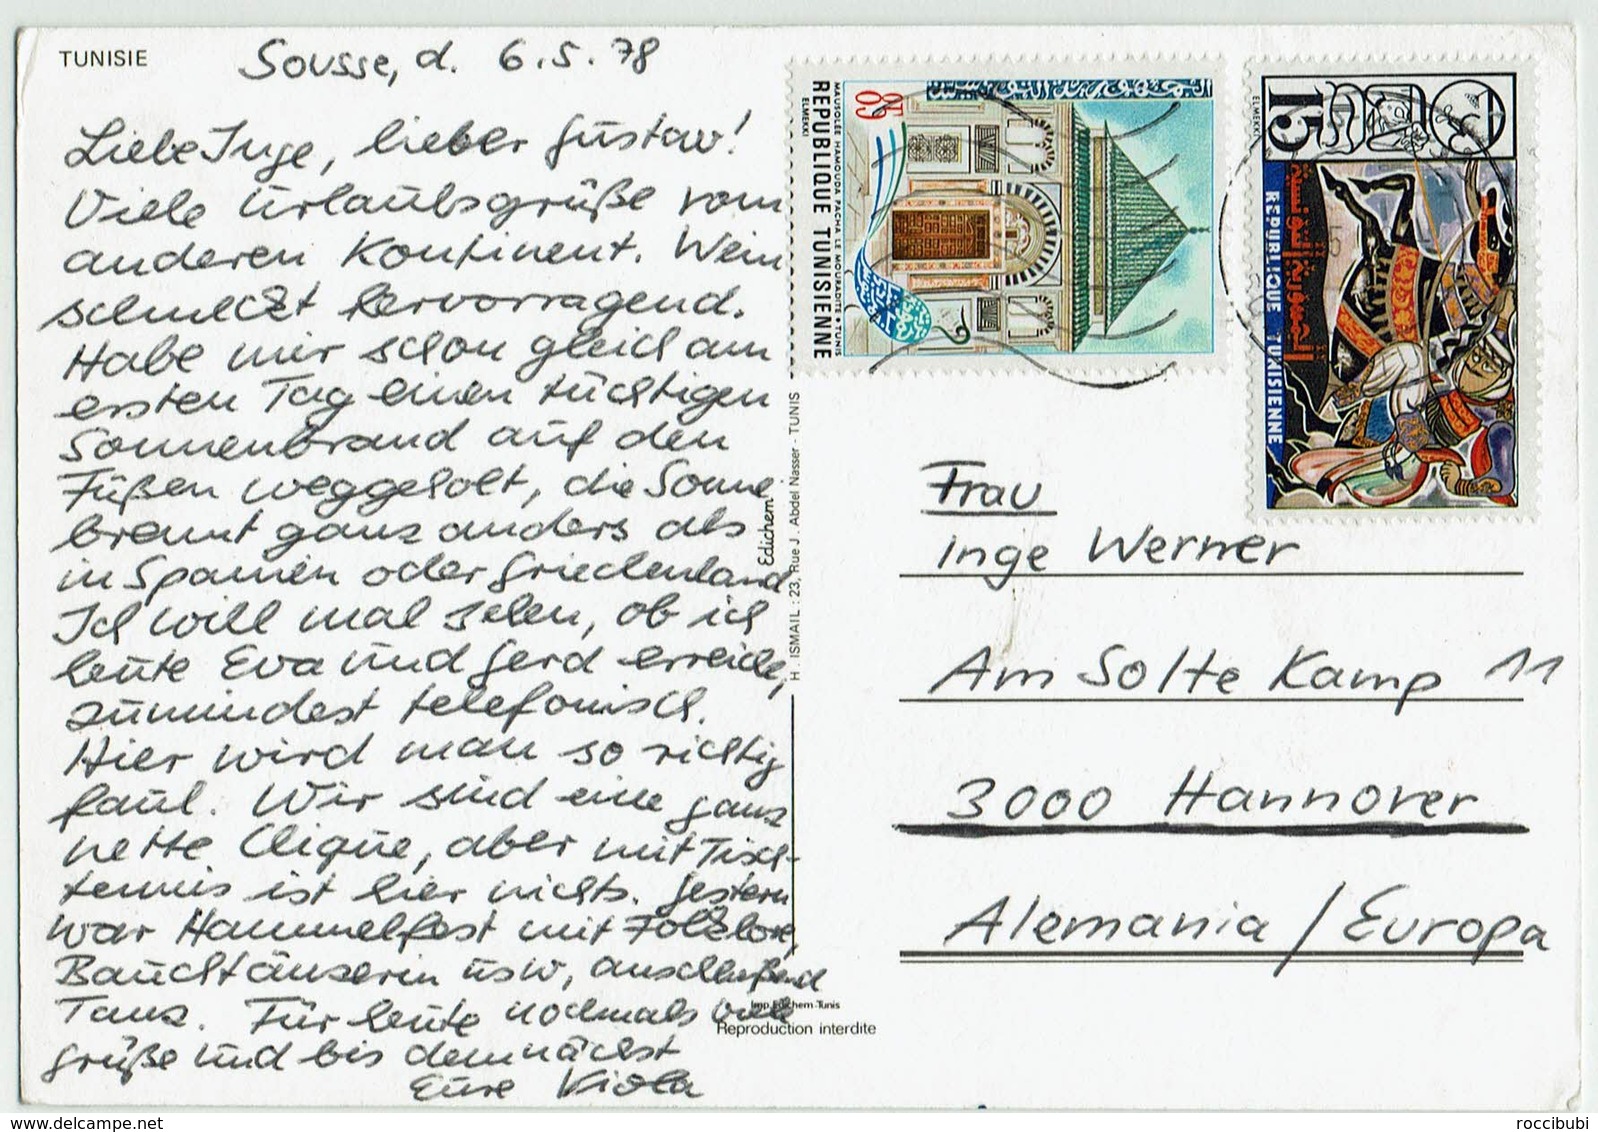 TUNISIE
Sousse, d. 6.5.78
Liebe Inge, lieber Gustav!
Viele Urlaubsgrüße vom
anderen Kontinent. Wein
schmeckt hervorragend.
Habe mir schon gleich am
ersten Tag einen tüchtigen
Sonnenbrand auf den
Füßen weggeholt, die Sonne
brennt ganz anders als
in Spanien oder Griechenland
Ich will mal sehen, ob ich
heute Eva und Gerd erreiche,
zumindest telefonisch.
Hier wird man so richtig
faul. Wir sind eine ganz
nette Clique, aber mit Tisch-
tennis ist hier nichts. Gestern
war Hammelfest mit Folklore,
Bauchtänzerin usw, anschließend
Tanz. Für heute nochmals viele
Grüße und bis demnächst
Eure Viola
Edichem
H. ISMAIL : 23, Rue J. Abdel Nasser - TUNIS
Imp. Edichem-Tunis
Reproduction interdite
REPUBLIQUE TUNISIENNE
MAUSOLÉE HAMOUDA PACHA LE MOURADITE • TUNIS
ELMEKKI
15
ELMEKKI
REPUBLIQUE TUNISIENNE
الجمهورية التونسية
Frau
Inge Werner
Am Solte Kamp 11
3000 Hannover
Alemania / Europa
www.delcampe.net
roccibubi